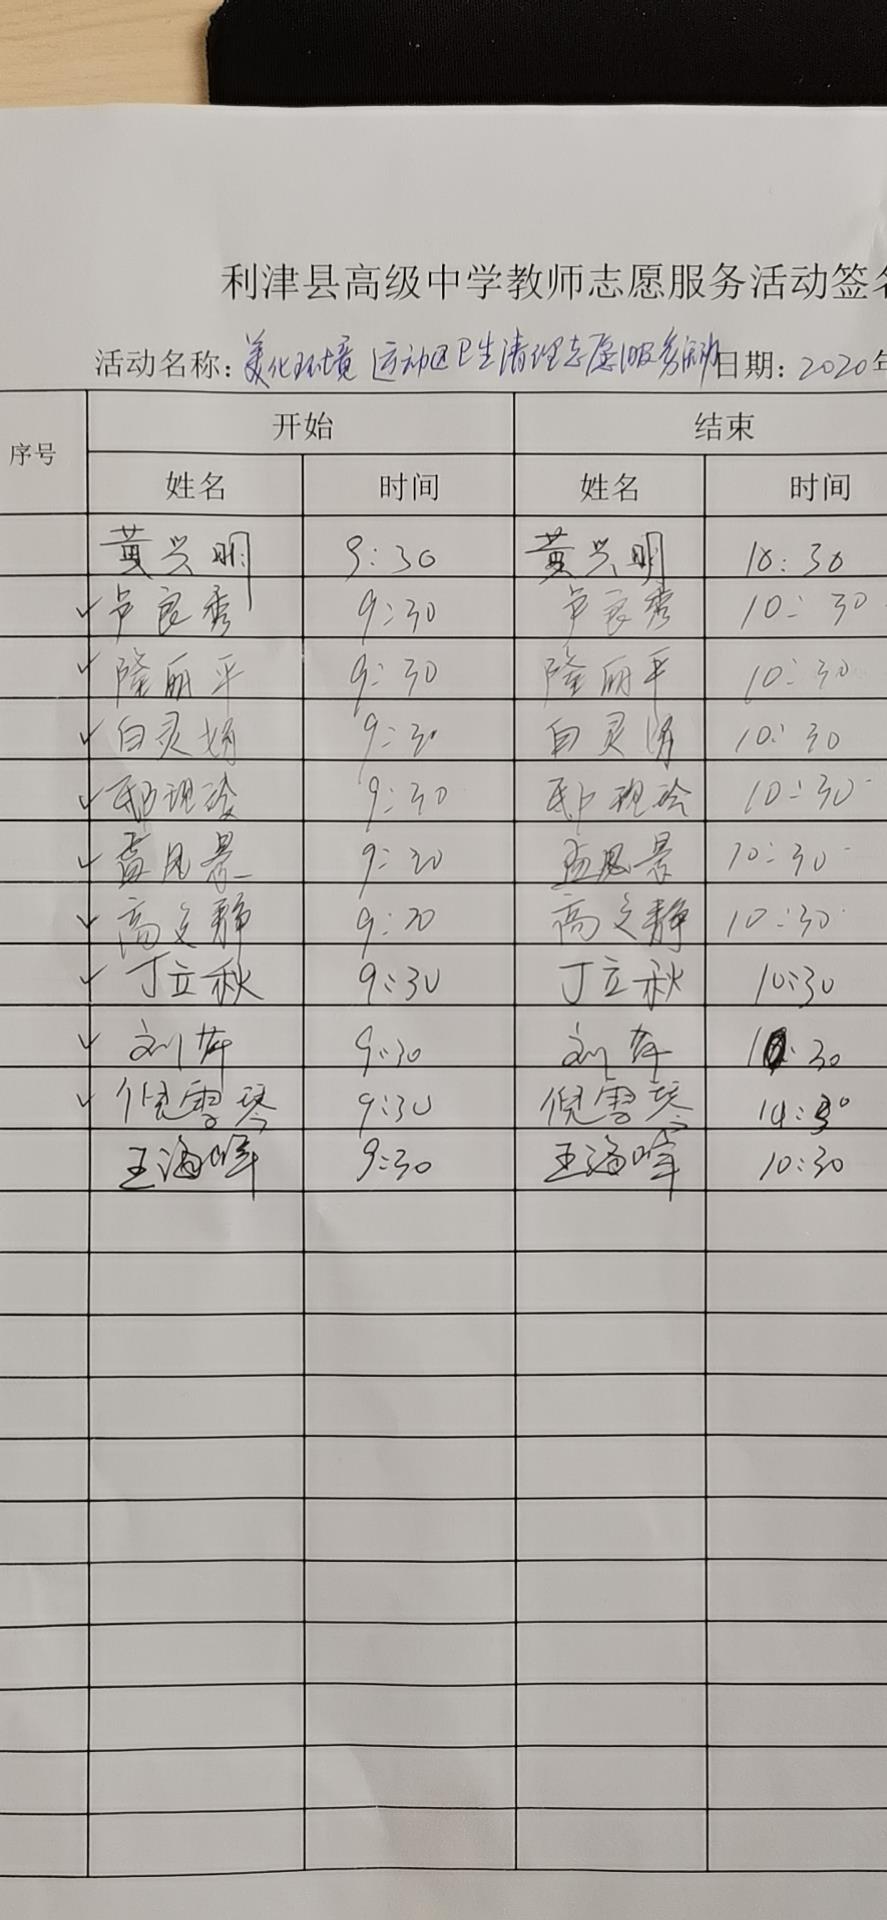 利津县高级中学教师志愿服务活动签名
活动名称：美化环境 运动区卫生清理志愿服务活动 日期：2020年
序号 开始 结束
姓名 时间 姓名 时间
黄兴明 9:30 黄兴明 10:30
✓ 卢良秀 9:30 卢良秀 10:30
✓ 隆丽平 9:30 隆丽平 10:30
✓ 白灵娟 9:30 白灵娟 10:30
✓ 9:30 10:30
✓ 孟凤景 9:30 孟凤景 10:30
✓ 高文静 9:30 高文静 10:30
✓ 丁立秋 9:30 丁立秋 10:30
✓ 刘萍 9:30 刘萍 10:30
✓ 倪雪琴 9:30 倪雪琴 10:30
王海峰 9:30 王海峰 10:30